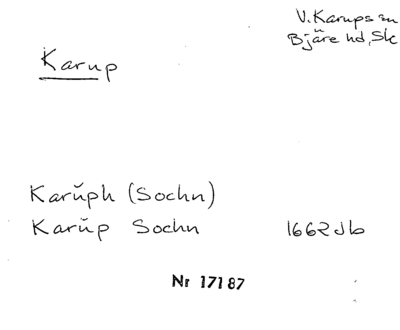 Karup
V. Karups sn
Bjäre hd, Sk
Karŭph (Sochn)
Karŭp Sochn 1662 Jb
Nr 17187